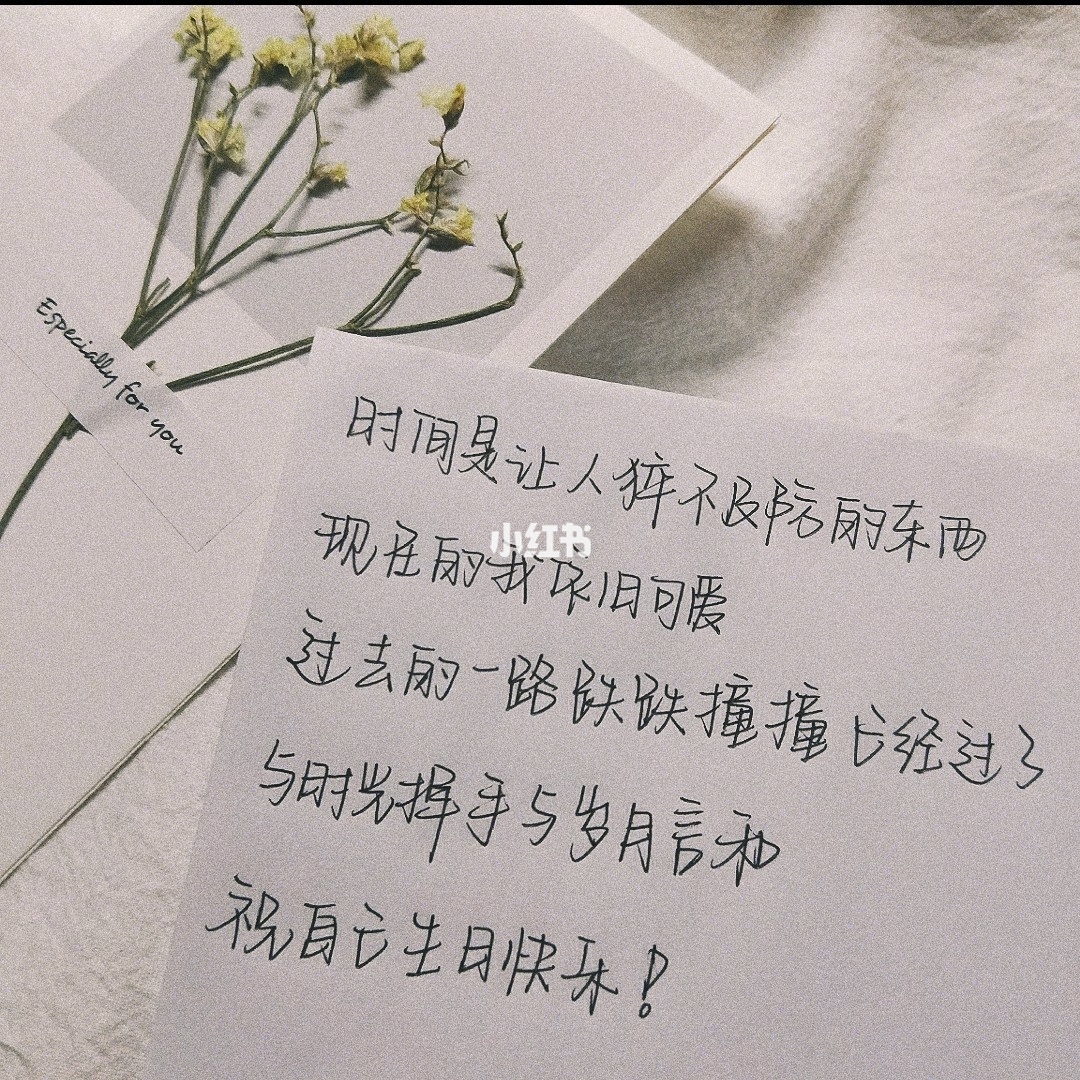 Especially for you
时间是让人猝不及防的东西
小红书
现在的我依旧可爱
过去的一路跌跌撞撞已经过了
与时光挥手与岁月言和
祝自己生日快乐！